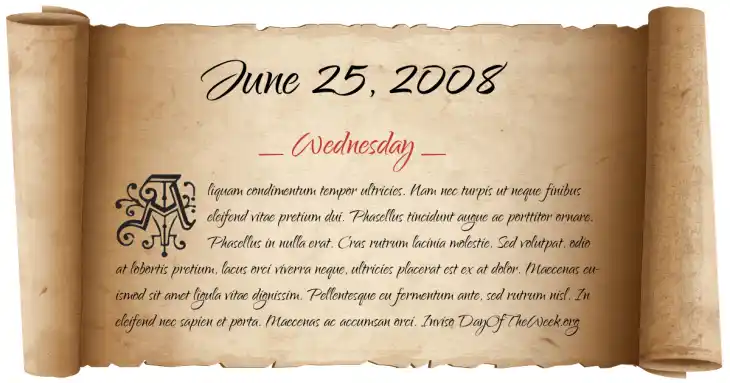 June 25, 2008
— Wednesday —
Aliquam condimentum tempor ultricies. Nam nec turpis ut neque finibus
eleifend vitae pretium dui. Phasellus tincidunt augue ac porttitor ornare.
Phasellus in nulla erat. Cras rutrum lacinia molestie. Sed volutpat, odio
at lobortis pretium, lacus orci viverra neque, ultricies placerat est ex at dolor. Maecenas eu-
ismod sit amet ligula vitae dignissim. Pellentesque eu fermentum ante, sed rutrum nisl. In
eleifend nec sapien et porta. Maecenas ac accumsan orci. Inviso DayOfTheWeek.org